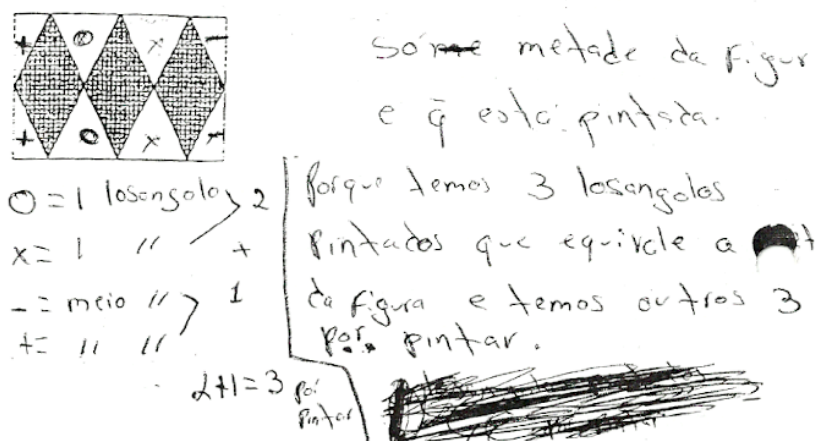 + 0 x -
+ 0 x -
Só metade da figur
e q̃ está pintada.
0 = 1 losangolo
2
x = 1 "
+
- = meio "
1
+ = " "
2+1=3 por
pintar
Porque temos 3 losangolos
Pintados que equivale a
da figura e temos outros 3
por pintar.